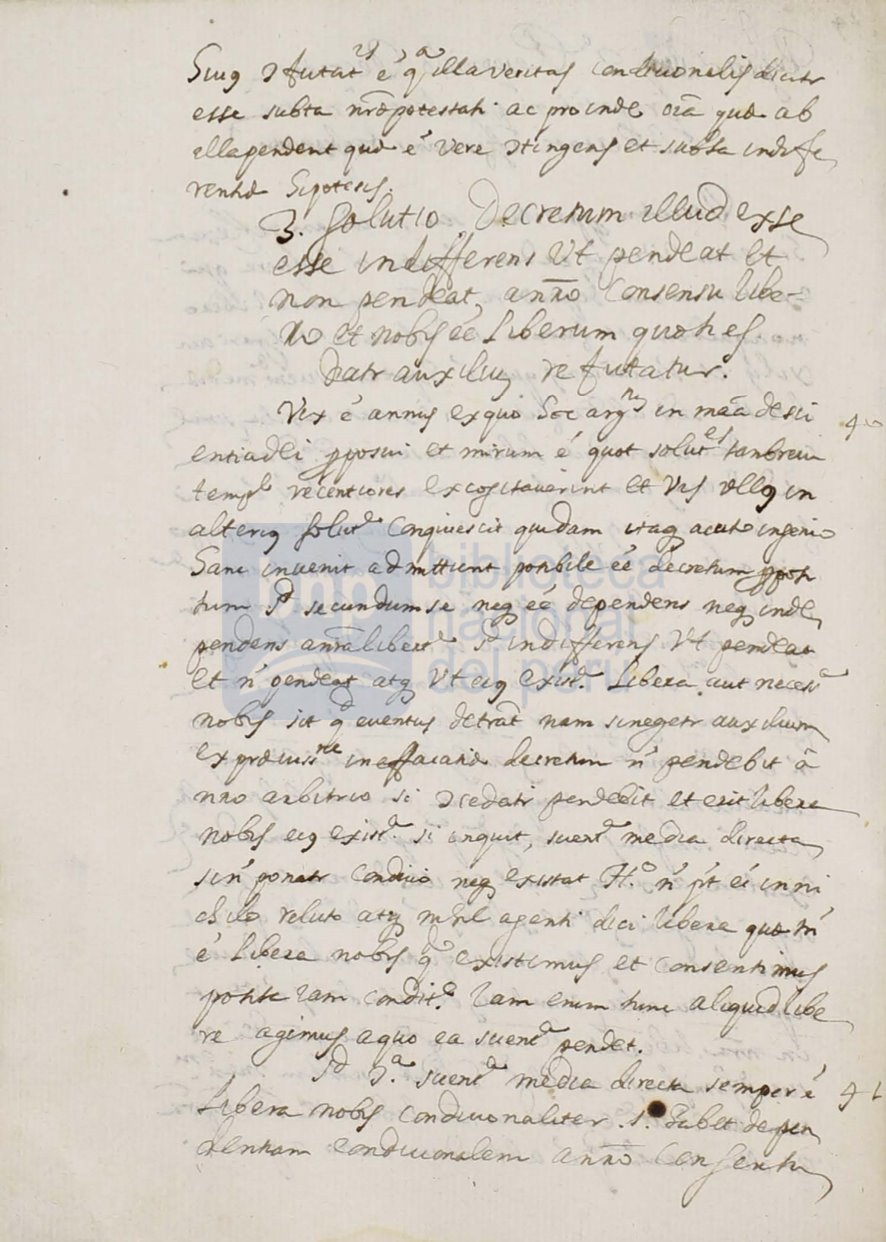 Huiq ɔfutat.is é q.a illa veritas conditionalis dicitr
esse subta nr̃e potestati ac proinde oĩa quæ ab
illa pendent quæ é vere ɔtingens et subta indiffe
rentiæ hipotesis.
3. Solutio. Decretum illud ex se
esse indifferens Ut pendeat et
non pendeat, a nr̃o Consensu libe-
ro et nobis éé Liberum quoties
datr auxiliū refutatur.
Vix é annus ex quo hoc arg.m in mãa de sci
entia dei pposui et mirum é quot solut.es tan brevi
temp.e recentiores excogitaverint et Vix ullq in
alteriq solut.e Conquiescit quidam itaq acuto ingenio
sane invenit admittunt posibile éé decretum pposi
tum sd secundum se neq éé dependens neq inde
pendens a nr̃a libert.e sd indifferens Ut pendeat
et ñ pendeat atq Ut eiq exist.a Libera aut necess.a
nobis sit qd eventus detrat nam si negetr auxilium
ex præviss.ne inefficatiæ decretum ñ pendebit â
nr̃o arbitrio si ɔcedatr pendebit et erit libera
nobis eiq exist.a si inquit, scient.a media directa
si ñ ponatr Conditio neq existat H.o ñ pt ei in ni
chilo reluto atq mħl agenti dici libera quæ tñ
é Libera nobis qd existimus et Consentimus
posita iam condit.e iam enim tunc aliquid libe
re agimus a quo ea scient.a pendet.
sd ɔ.a scient.a media directa semper é
Libera nobis conditionaliter .i. habet depen
dentiam conditionalem a nr̃o Consensu
40
41
biblioteca
nacional
del perú
bnp